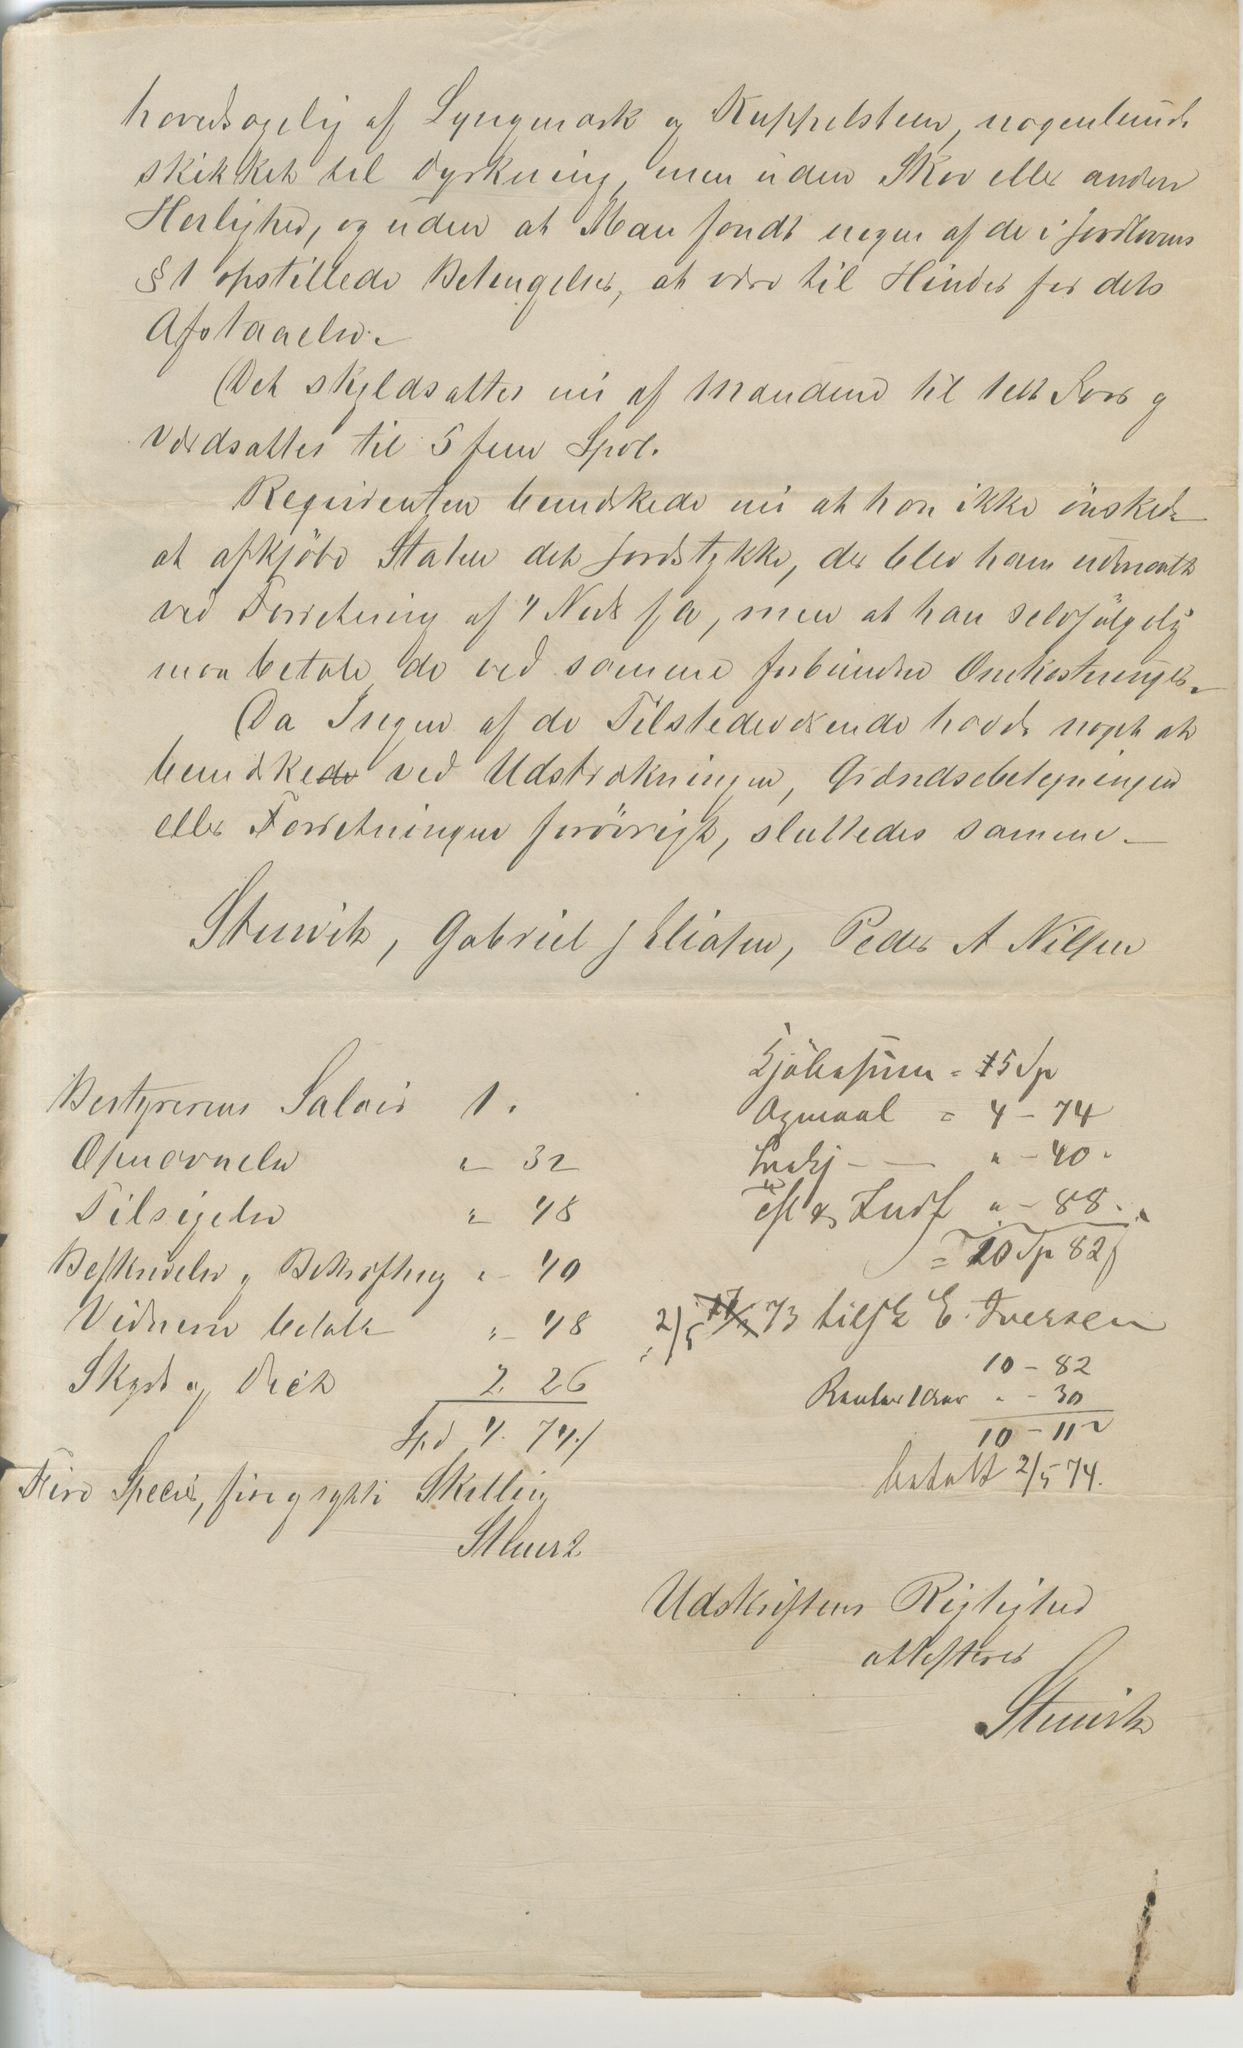 hovedsagelig af Lyngmark og Kuppelsteen, nogenlunde
skikket til Dyrkning, men uden Skov eller anden
Herlighed, og uden at Man fandt nogen af de i Jordlovens
§ 1 opstillede Betingelser, at være til Hinder for dets
Afstaaelse.
Det skyldsattes nu af Mændene til 1 ett Øre og
værdsattes til 5 fem Spd.
Requirenten bemærkede nu at han ikke ønskede
at afkjøbe Staten det Jordstykke, der blev ham udmaalt
ved Forretning af 4 f. A, men at han selvfølgelig
maa betale de ved samme forbundne Omkostninger.
Da Ingen af de Tilstedeværende havde noget at
bemærke ved Udstrækningen, Grændsebetegningen
eller Forretningen forøvrigt, sluttedes samme.
Gabriel J Eliasen, Peder A Nilsen
Bestyrerens Salair 1.
Opnævnelse " 32
Tilsigelse " 48
Beskrivelse og Bekræftelse " 40
Vidnerne betalt " 48
Skyds og Diæt 2. 26
Spd 4. 74
Fire Species, fire og sytti Skilling
Kjøbesum = 5 Sp
Opmaal = 4 - 74
" - 40
" - 88
= 10 Sp 82
2/5 73 tilsk E. Iversen
10 - 82
Renter 1 Aar " - 30
10 - 112
betalt 2/5 74.
Udskriftens Rigtighed
attesteres